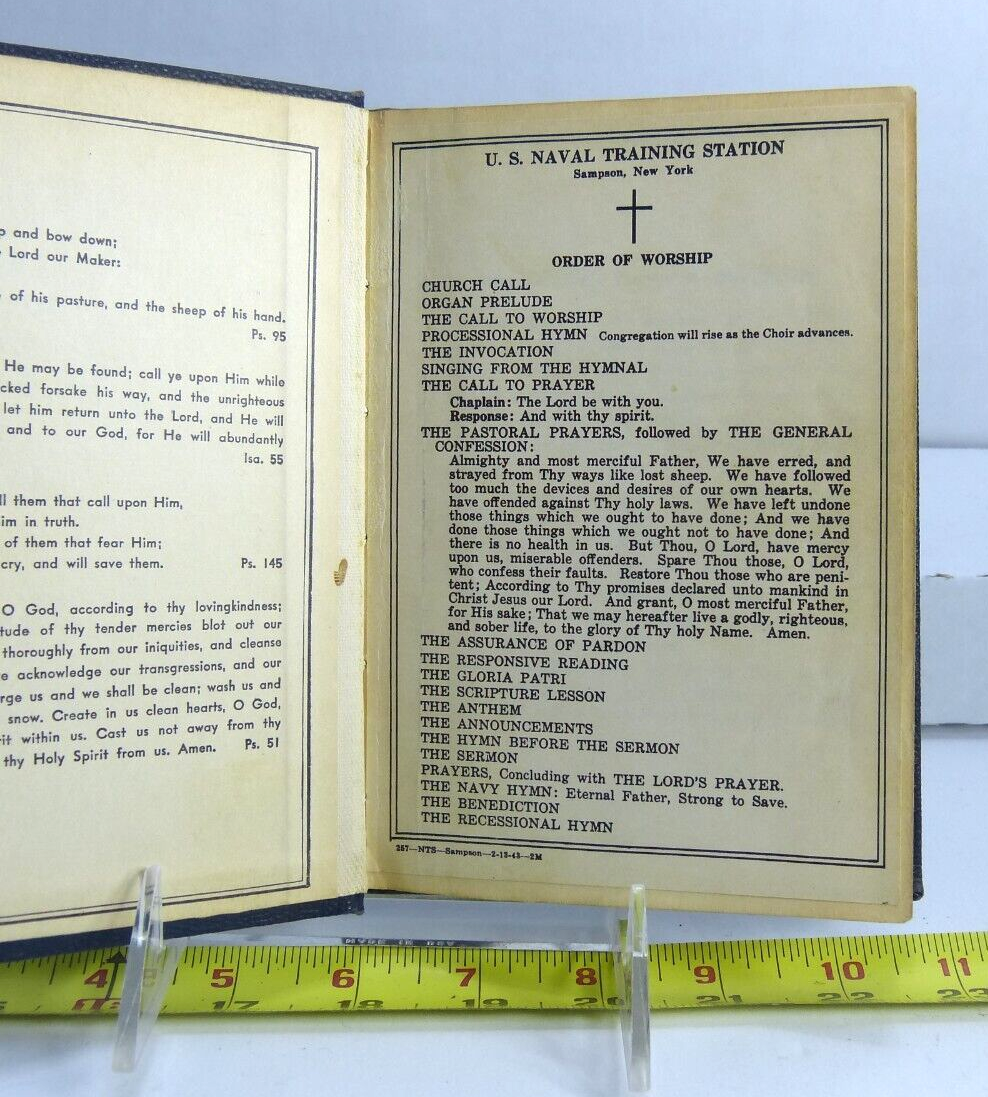 p and bow down;
Lord our Maker:
of his pasture, and the sheep of his hand.
Ps. 95
He may be found; call ye upon Him while
cked forsake his way, and the unrighteous
let him return unto the Lord, and He will
and to our God, for He will abundantly
Isa. 55
ll them that call upon Him,
im in truth.
of them that fear Him;
cry, and will save them. Ps. 145
O God, according to thy lovingkindness;
tude of thy tender mercies blot out our
thoroughly from our iniquities, and cleanse
e acknowledge our transgressions, and our
rge us and we shall be clean; wash us and
snow. Create in us clean hearts, O God,
it within us. Cast us not away from thy
thy Holy Spirit from us. Amen. Ps. 51
U. S. NAVAL TRAINING STATION
Sampson, New York
ORDER OF WORSHIP
CHURCH CALL
ORGAN PRELUDE
THE CALL TO WORSHIP
PROCESSIONAL HYMN Congregation will rise as the Choir advances.
THE INVOCATION
SINGING FROM THE HYMNAL
THE CALL TO PRAYER
Chaplain: The Lord be with you.
Response: And with thy spirit.
THE PASTORAL PRAYERS, followed by THE GENERAL
CONFESSION:
Almighty and most merciful Father, We have erred, and
strayed from Thy ways like lost sheep. We have followed
too much the devices and desires of our own hearts. We
have offended against Thy holy laws. We have left undone
those things which we ought to have done; And we have
done those things which we ought not to have done; And
there is no health in us. But Thou, O Lord, have mercy
upon us, miserable offenders. Spare Thou those, O Lord,
who confess their faults. Restore Thou those who are peni-
tent; According to Thy promises declared unto mankind in
Christ Jesus our Lord. And grant, O most merciful Father,
for His sake; That we may hereafter live a godly, righteous,
and sober life, to the glory of Thy holy Name. Amen.
THE ASSURANCE OF PARDON
THE RESPONSIVE READING
THE GLORIA PATRI
THE SCRIPTURE LESSON
THE ANTHEM
THE ANNOUNCEMENTS
THE HYMN BEFORE THE SERMON
THE SERMON
PRAYERS, Concluding with THE LORD'S PRAYER.
THE NAVY HYMN: Eternal Father, Strong to Save.
THE BENEDICTION
THE RECESSIONAL HYMN
257—NTS—Sampson—2-13-43—2M
4 5 6 7 8 9 10 11
17 18 19 20 21 2